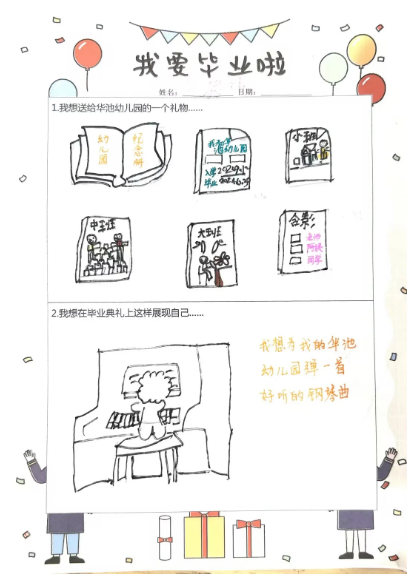 我要毕业啦
姓名： 日期：
1.我想送给华池幼儿园的一个礼物......
幼儿园 纪念册
入学
毕业
小班
中班
大班
合影
老师
阿姨
同学
2.我想在毕业典礼上这样展现自己......
我想为我的华池
幼儿园弹一首
好听的钢琴曲